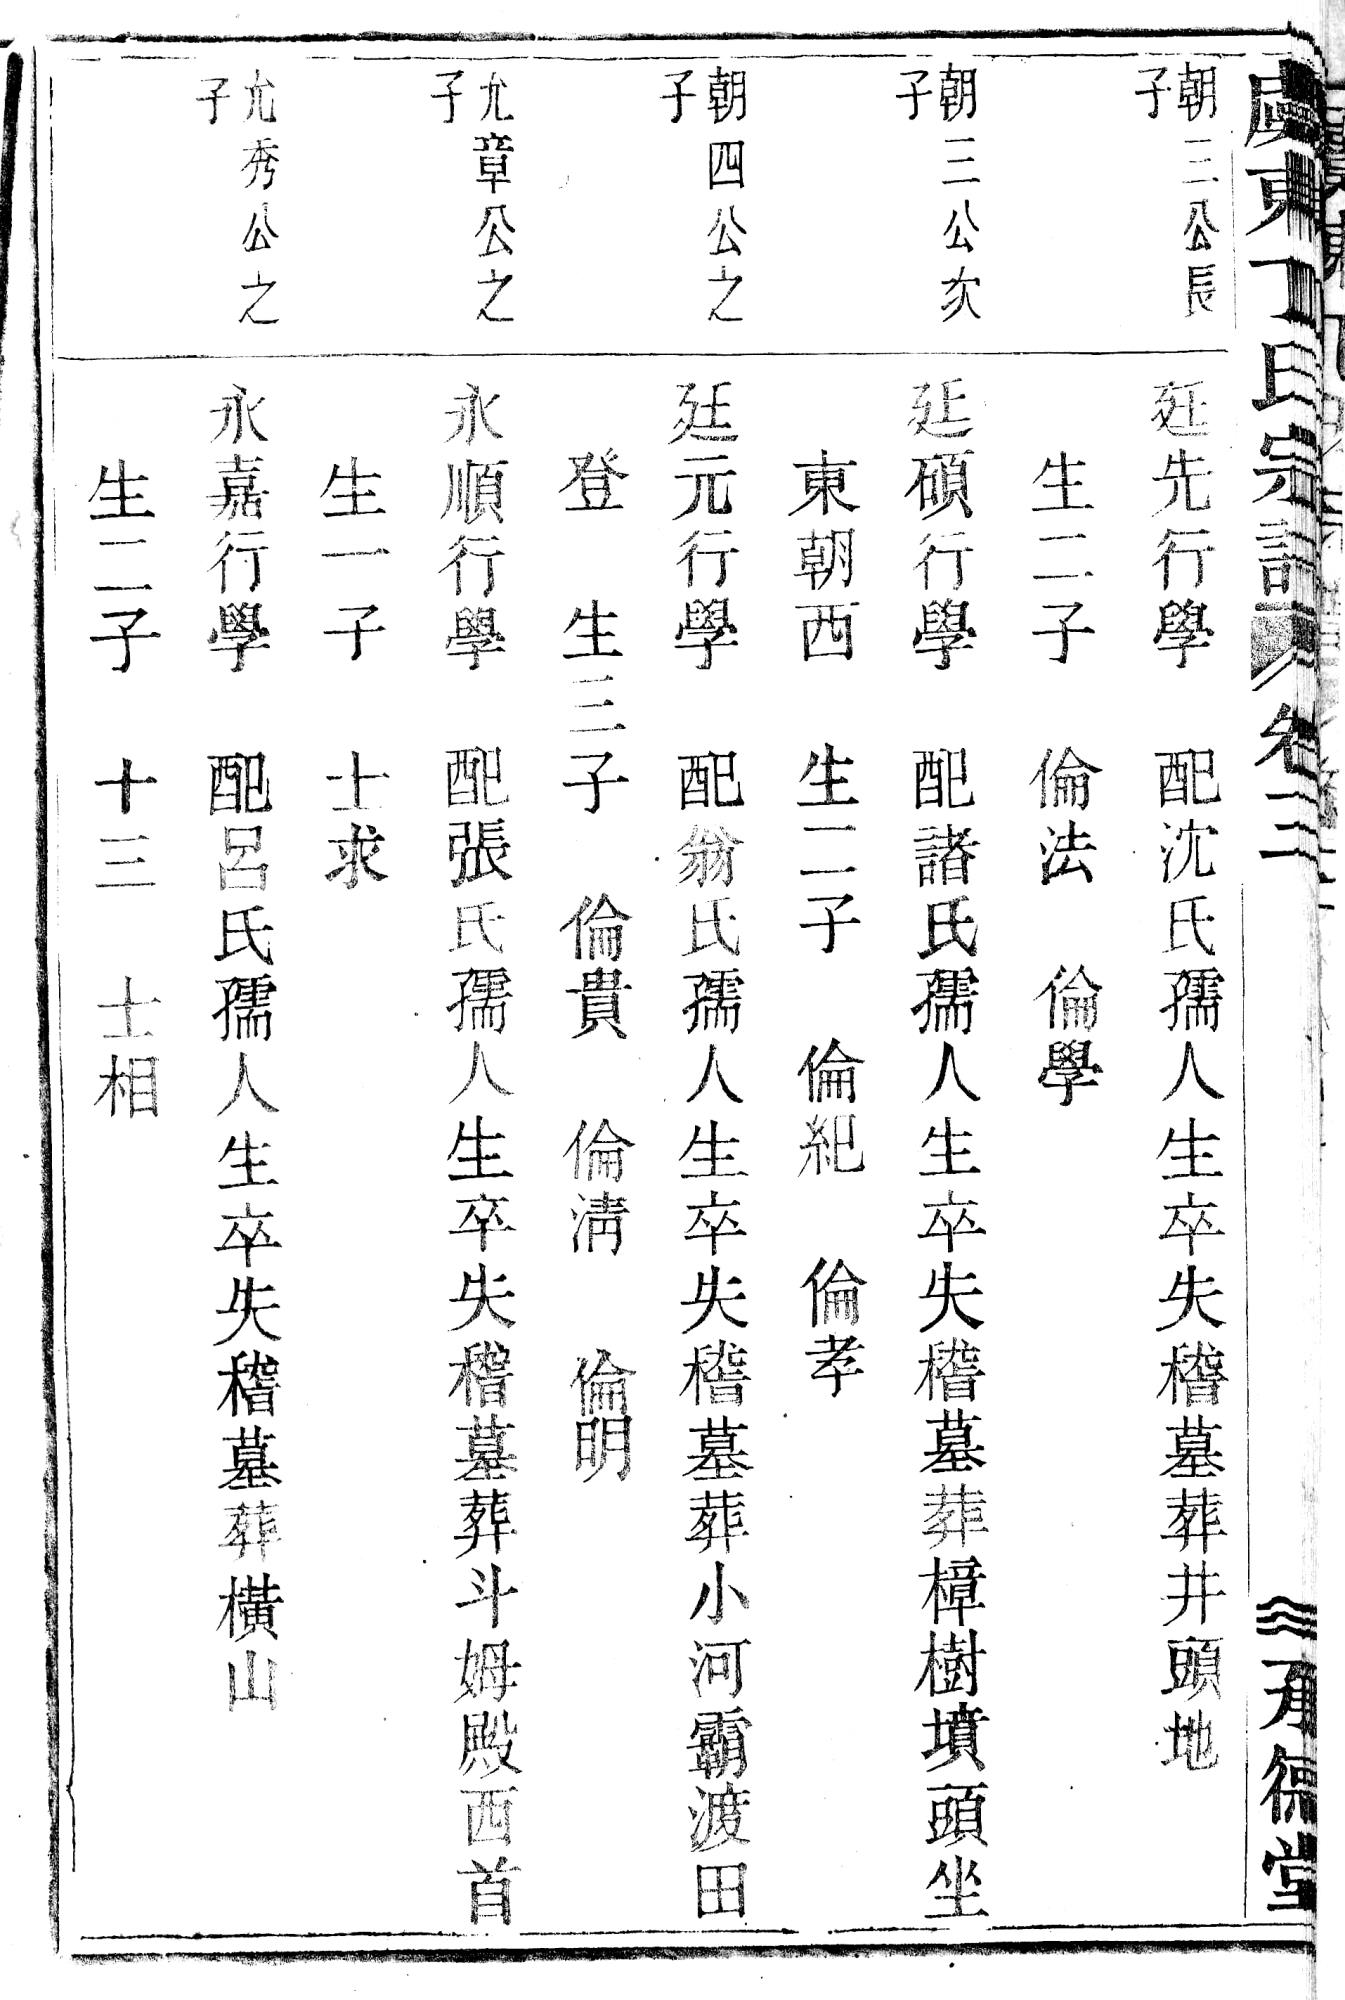 虞東丁氏宗譜 卷二 承德堂
朝三公長子
延先行學 配沈氏孺人生卒失稽墓葬井頭地
生二子 倫法 倫學
朝三公次子
延碩行學 配諸氏孺人生卒失稽墓葬樟樹墳頭坐
東朝西 生二子 倫紀 倫孝
朝四公之子
廷元行學 配翁氏孺人生卒失稽墓葬小河霸渡田
登 生三子 倫貴 倫淸 倫明
允章公之子
永順行學 配張氏孺人生卒失稽墓葬斗姆殿西首
生一子 士求
允秀公之子
永嘉行學 配呂氏孺人生卒失稽墓葬橫山
生二子 十三 士相